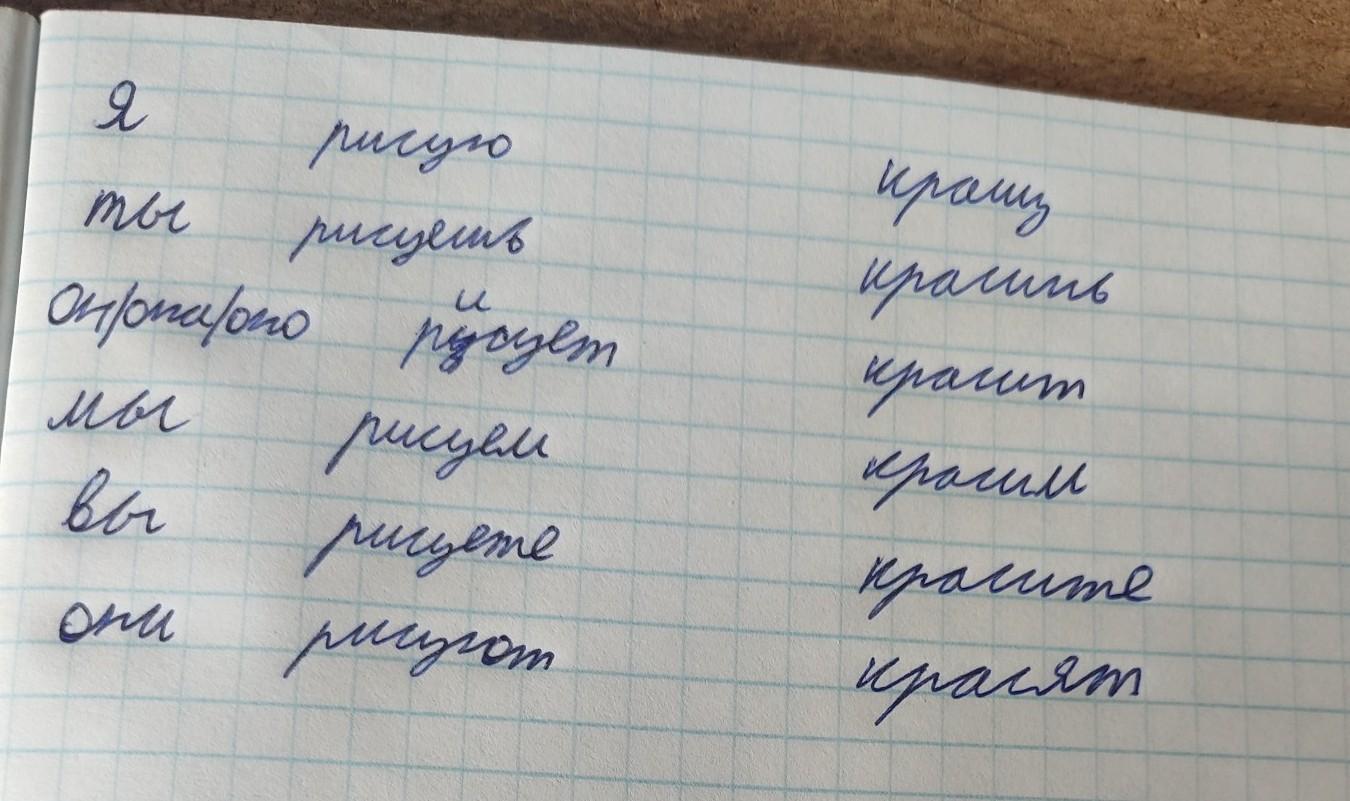 Я рисую крашу
ты рисуешь красишь
он/она/оно рисует красит
мы рисуем красим
вы рисуете красите
они рисуют красят